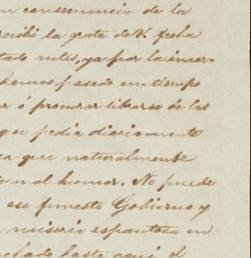 en consecuencia de la
recibí la grata de V. fecha
tado antes, ya por la
hemos pasado en tiempo
ar ó procurar libarse de las
que pedia diariamente
ca que naturalmente
n al humor. No puede
ese funesto Gobierno y
miseria espantosa en
hasta aquí el